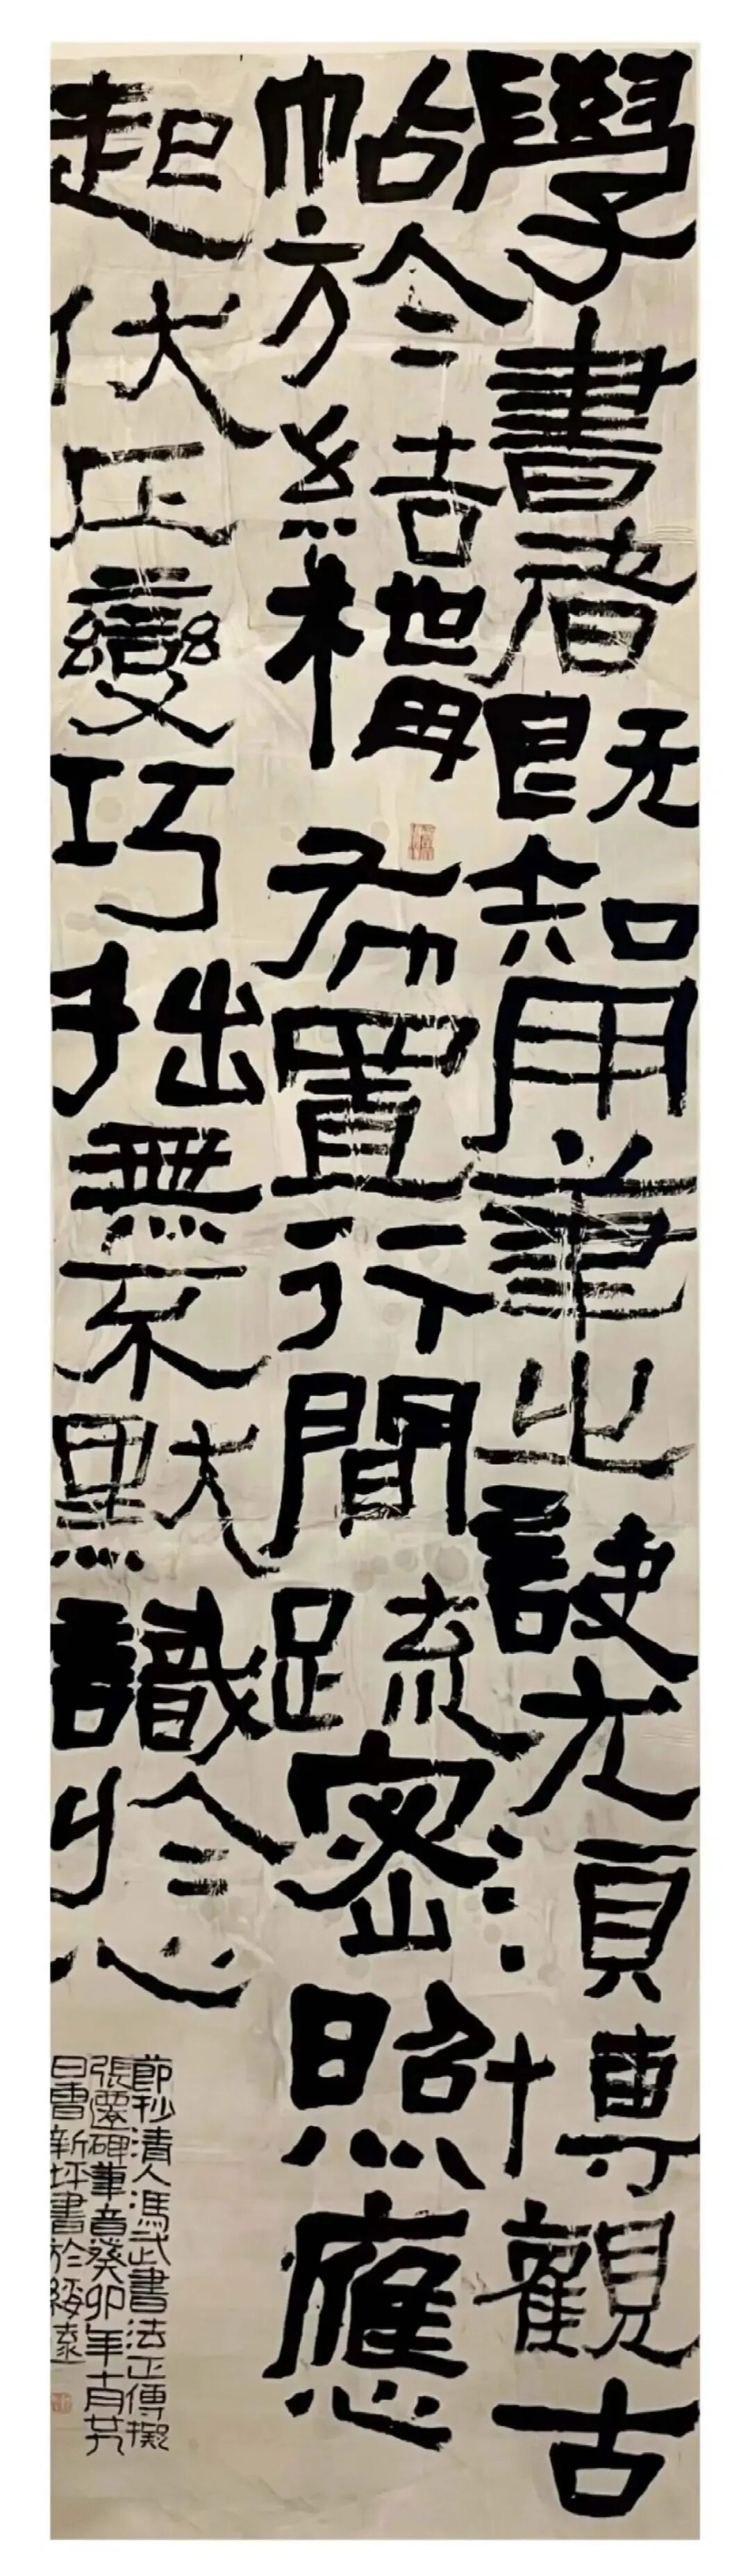 學書者既知用筆之訣尤須博觀古
帖於結構布置行間疏密照應
起伏正變巧拙無不默識於心
節抄清人馮武書法正傳擬
張遷碑筆意癸卯年十月廿
日曹新坪書於綏遠